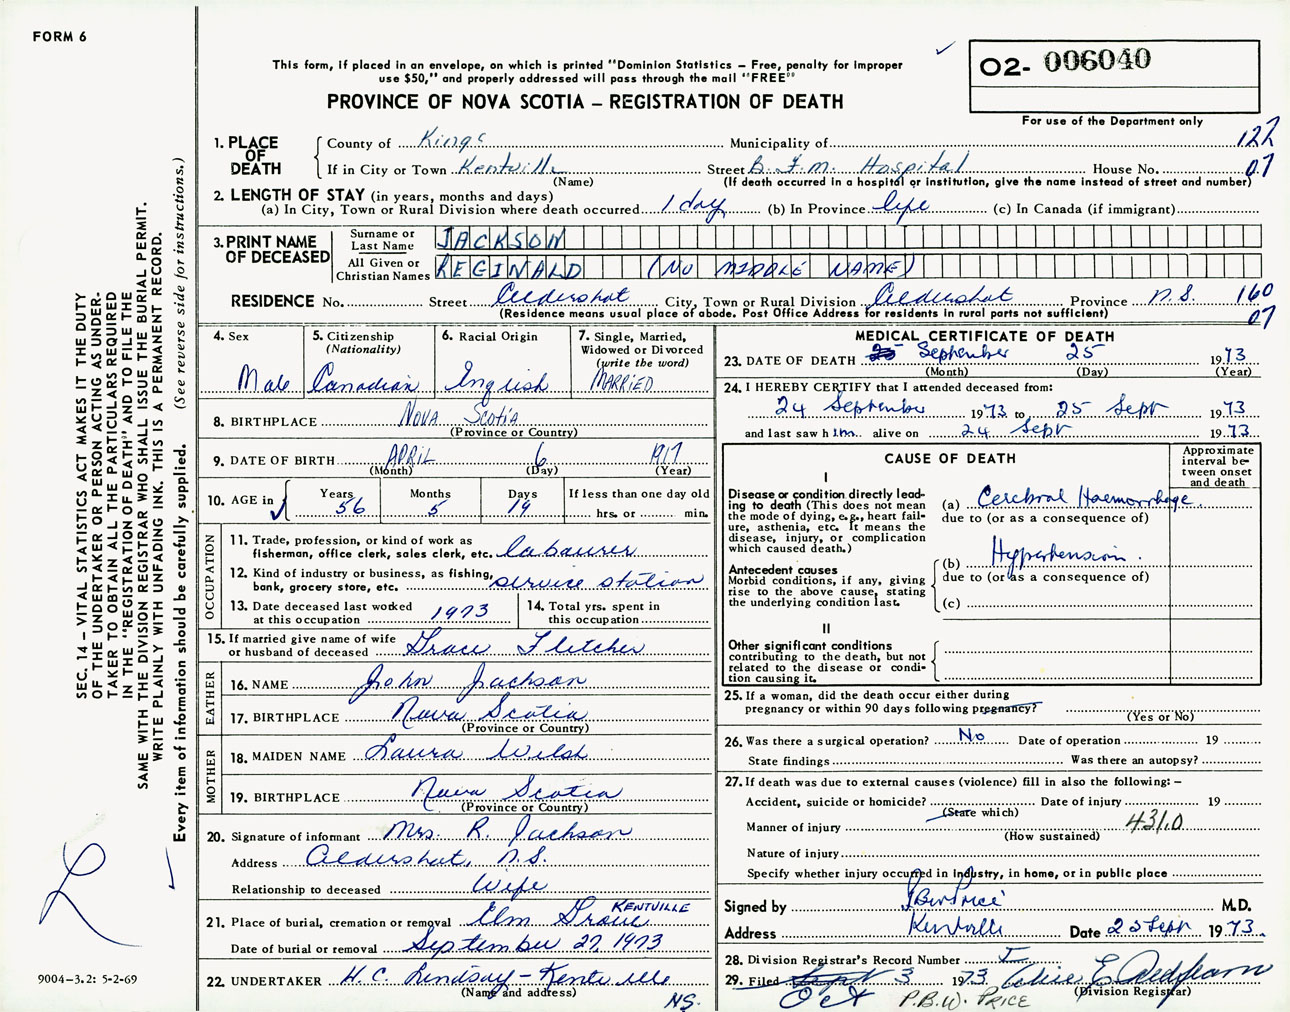 FORM 6
This form, if placed in an envelope, on which is printed "Dominion Statistics – Free, penalty for improper
use $50," and properly addressed will pass through the mail "FREE"
PROVINCE OF NOVA SCOTIA – REGISTRATION OF DEATH
O2- 006040
For use of the Department only
1. PLACE OF DEATH
County of Kings Municipality of 122
If in City or Town Kentville Street B. F. M. Hospital House No. 07
(Name) (If death occurred in a hospital or institution, give the name instead of street and number)
2. LENGTH OF STAY (in years, months and days)
(a) In City, Town or Rural Division where death occurred 1 day (b) In Province life (c) In Canada (if immigrant)
3. PRINT NAME OF DECEASED
Surname or Last Name JACKSON
All Given or Christian Names REGINALD (NO MIDDLE NAME)
RESIDENCE No. Street Aldershot City, Town or Rural Division Aldershot Province N.S. 160
(Residence means usual place of abode. Post Office Address for residents in rural parts not sufficient) 07
4. Sex
Male
5. Citizenship
(Nationality)
Canadian
6. Racial Origin
English
7. Single, Married,
Widowed or Divorced
(write the word)
MARRIED
8. BIRTHPLACE Nova Scotia
(Province or Country)
9. DATE OF BIRTH APRIL 6 1917
(Month) (Day) (Year)
10. AGE in
Years Months Days If less than one day old
56 5 19 hrs. or min.
OCCUPATION
11. Trade, profession, or kind of work as
fisherman, office clerk, sales clerk, etc. labourer
12. Kind of industry or business, as fishing,
bank, grocery store, etc. service station
13. Date deceased last worked
at this occupation 1973
14. Total yrs. spent in
this occupation
15. If married give name of wife
or husband of deceased Grace Fletcher
FATHER
16. NAME John Jackson
17. BIRTHPLACE Nova Scotia
(Province or Country)
MOTHER
18. MAIDEN NAME Laura Welsh
19. BIRTHPLACE Nova Scotia
(Province or Country)
20. Signature of informant Mrs. R. Jackson
Address Aldershot, N.S.
Relationship to deceased Wife
21. Place of burial, cremation or removal Elm Grove KENTVILLE
Date of burial or removal September 27, 1973
22. UNDERTAKER H.C. Lindsay – Kentville
(Name and address) NS.
MEDICAL CERTIFICATE OF DEATH
23. DATE OF DEATH September 25 1973
(Month) (Day) (Year)
24. I HEREBY CERTIFY that I attended deceased from:
24 September 1973 to 25 Sept 1973
and last saw him alive on 24 Sept 1973
CAUSE OF DEATH
Approximate
interval be-
tween onset
and death
I
Disease or condition directly lead-
ing to death (This does not mean
the mode of dying, e.g., heart fail-
ure, asthenia, etc. It means the
disease, injury, or complication
which caused death.)
(a) Cerebral Haemorrhage.
due to (or as a consequence of)
Antecedent causes
Morbid conditions, if any, giving
rise to the above cause, stating
the underlying condition last.
(b) Hypertension.
due to (or as a consequence of)
(c)
II
Other significant conditions
contributing to the death, but not
related to the disease or condi-
tion causing it.
25. If a woman, did the death occur either during
pregnancy or within 90 days following pregnancy?
(Yes or No)
26. Was there a surgical operation? No Date of operation 19
State findings Was there an autopsy?
27. If death was due to external causes (violence) fill in also the following: –
Accident, suicide or homicide? Date of injury 19
(State which)
Manner of injury 431.0
(How sustained)
Nature of injury
Specify whether injury occurred in Industry, in home, or in public place
Signed by PBW Price M.D.
Address Kentville Date 25 Sept 1973
28. Division Registrar's Record Number
29. Filed Sept 3 1973 Alice E.
Oct P.B.W. PRICE (Division Registrar)
SEC. 14 – VITAL STATISTICS ACT MAKES IT THE DUTY
OF THE UNDERTAKER OR PERSON ACTING AS UNDER-
TAKER TO OBTAIN ALL THE PARTICULARS REQUIRED
IN THE "REGISTRATION OF DEATH" AND TO FILE THE
SAME WITH THE DIVISION REGISTRAR WHO SHALL ISSUE THE BURIAL PERMIT.
WRITE PLAINLY WITH UNFADING INK. THIS IS A PERMANENT RECORD.
Every item of information should be carefully supplied. (See reverse side for instructions.)
9004–3.2: 5-2-69